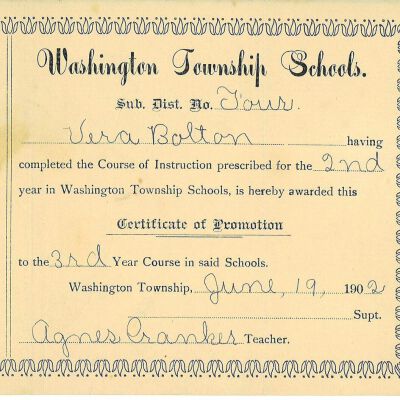 Washington Township Schools.
Sub. Dist. No. Four.
Vera Bolton having
completed the Course of Instruction prescribed for the 2nd
year in Washington Township Schools, is hereby awarded this
Certificate of Promotion
to the 3rd Year Course in said Schools.
Washington Township, June, 19, 1902
Supt.
Agnes Cranker Teacher.